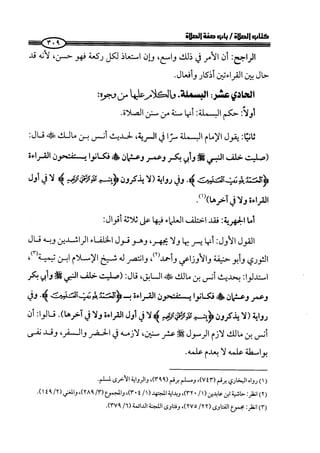 كتاب الصلاة / باب صفة الصلاة
٣٠٩
الراجح: أن الأمر في ذلك واسع، وإن استعاذ لكل ركعة فهو حسن، لأنه قد
حال بين القراءتين أذكار وأفعال.
الحادي عشر: البسملة. والكلام عليها من وجوه:
أولاً: حكم البسملة: أنها سنة من سنن الصلاة.
ثانيًا: يقول الإمام البسملة سرًا في السرية، لحديث أنس بن مالك ﷺ قال:
(صليت خلف النبي ﷺ وأبي بكر وعمر وعثمان ﷺ فكانوا يستفتحون القراءة
بـ ﴿الْحَمْدُ لِلَّهِ رَبِّ الْعَالَمِينَ﴾. وفي رواية (لا يذكرون ﴿بِسْمِ اللَّهِ الرَّحْمَنِ الرَّحِيمِ﴾ لا في أول
القراءة ولا في آخرها)(١).
أما الجهرية: فقد اختلف العلماء فيها على ثلاثة أقوال:
القول الأول: أنها يسر بها ولا يجهر، وهو قول الخلفاء الراشدين وبه قال
الثوري وأبو حنيفة والأوزاعي وأحمد(٢)، وانتصر له شيخ الإسلام ابن تيمية(٣)،
استدلوا: بحديث أنس بن مالك السابق، قال: (صليت خلف النبي ﷺ وأبي بكر
وعمر وعثمان فكانوا يستفتحون القراءة بـ ﴿الْحَمْدُ لِلَّهِ رَبِّ الْعَالَمِينَ﴾. وفي
رواية (لا يذكرون ﴿بِسْمِ اللَّهِ الرَّحْمَنِ الرَّحِيمِ﴾ لا في أول القراءة ولا في آخرها). قالوا: أن
أنس بن مالك لازم الرسول ﷺ عشر سنين، لازمه في الحضر والسفر، وقد نفى
بواسطة علمه لا بعدم علمه.
(١) رواه البخاري برقم (٧٤٣)، ومسلم برقم (٣٩٩)، والرواية الأخرى لمسلم.
(٢) انظر: حاشية ابن عابدين (١/ ٣٢٠)، وبداية المجتهد (١/ ٣٠٤)، والمجموع (٣/ ٢٨٩)، والمغني (٢/ ١٤٩).
(٣) انظر: مجموع الفتاوى (٢٢/ ٢٧٥)، وفتاوى اللجنة الدائمة (٦/ ٣٧٩).